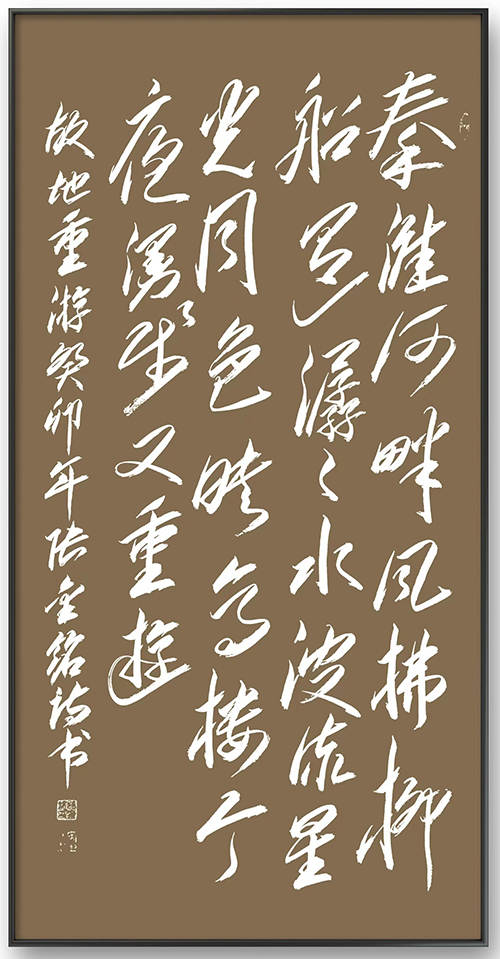 秦淮河畔风拂柳
船过潺々水波流星
光月色映高楼今
夜漫步又重游
故地重游癸卯年诗书